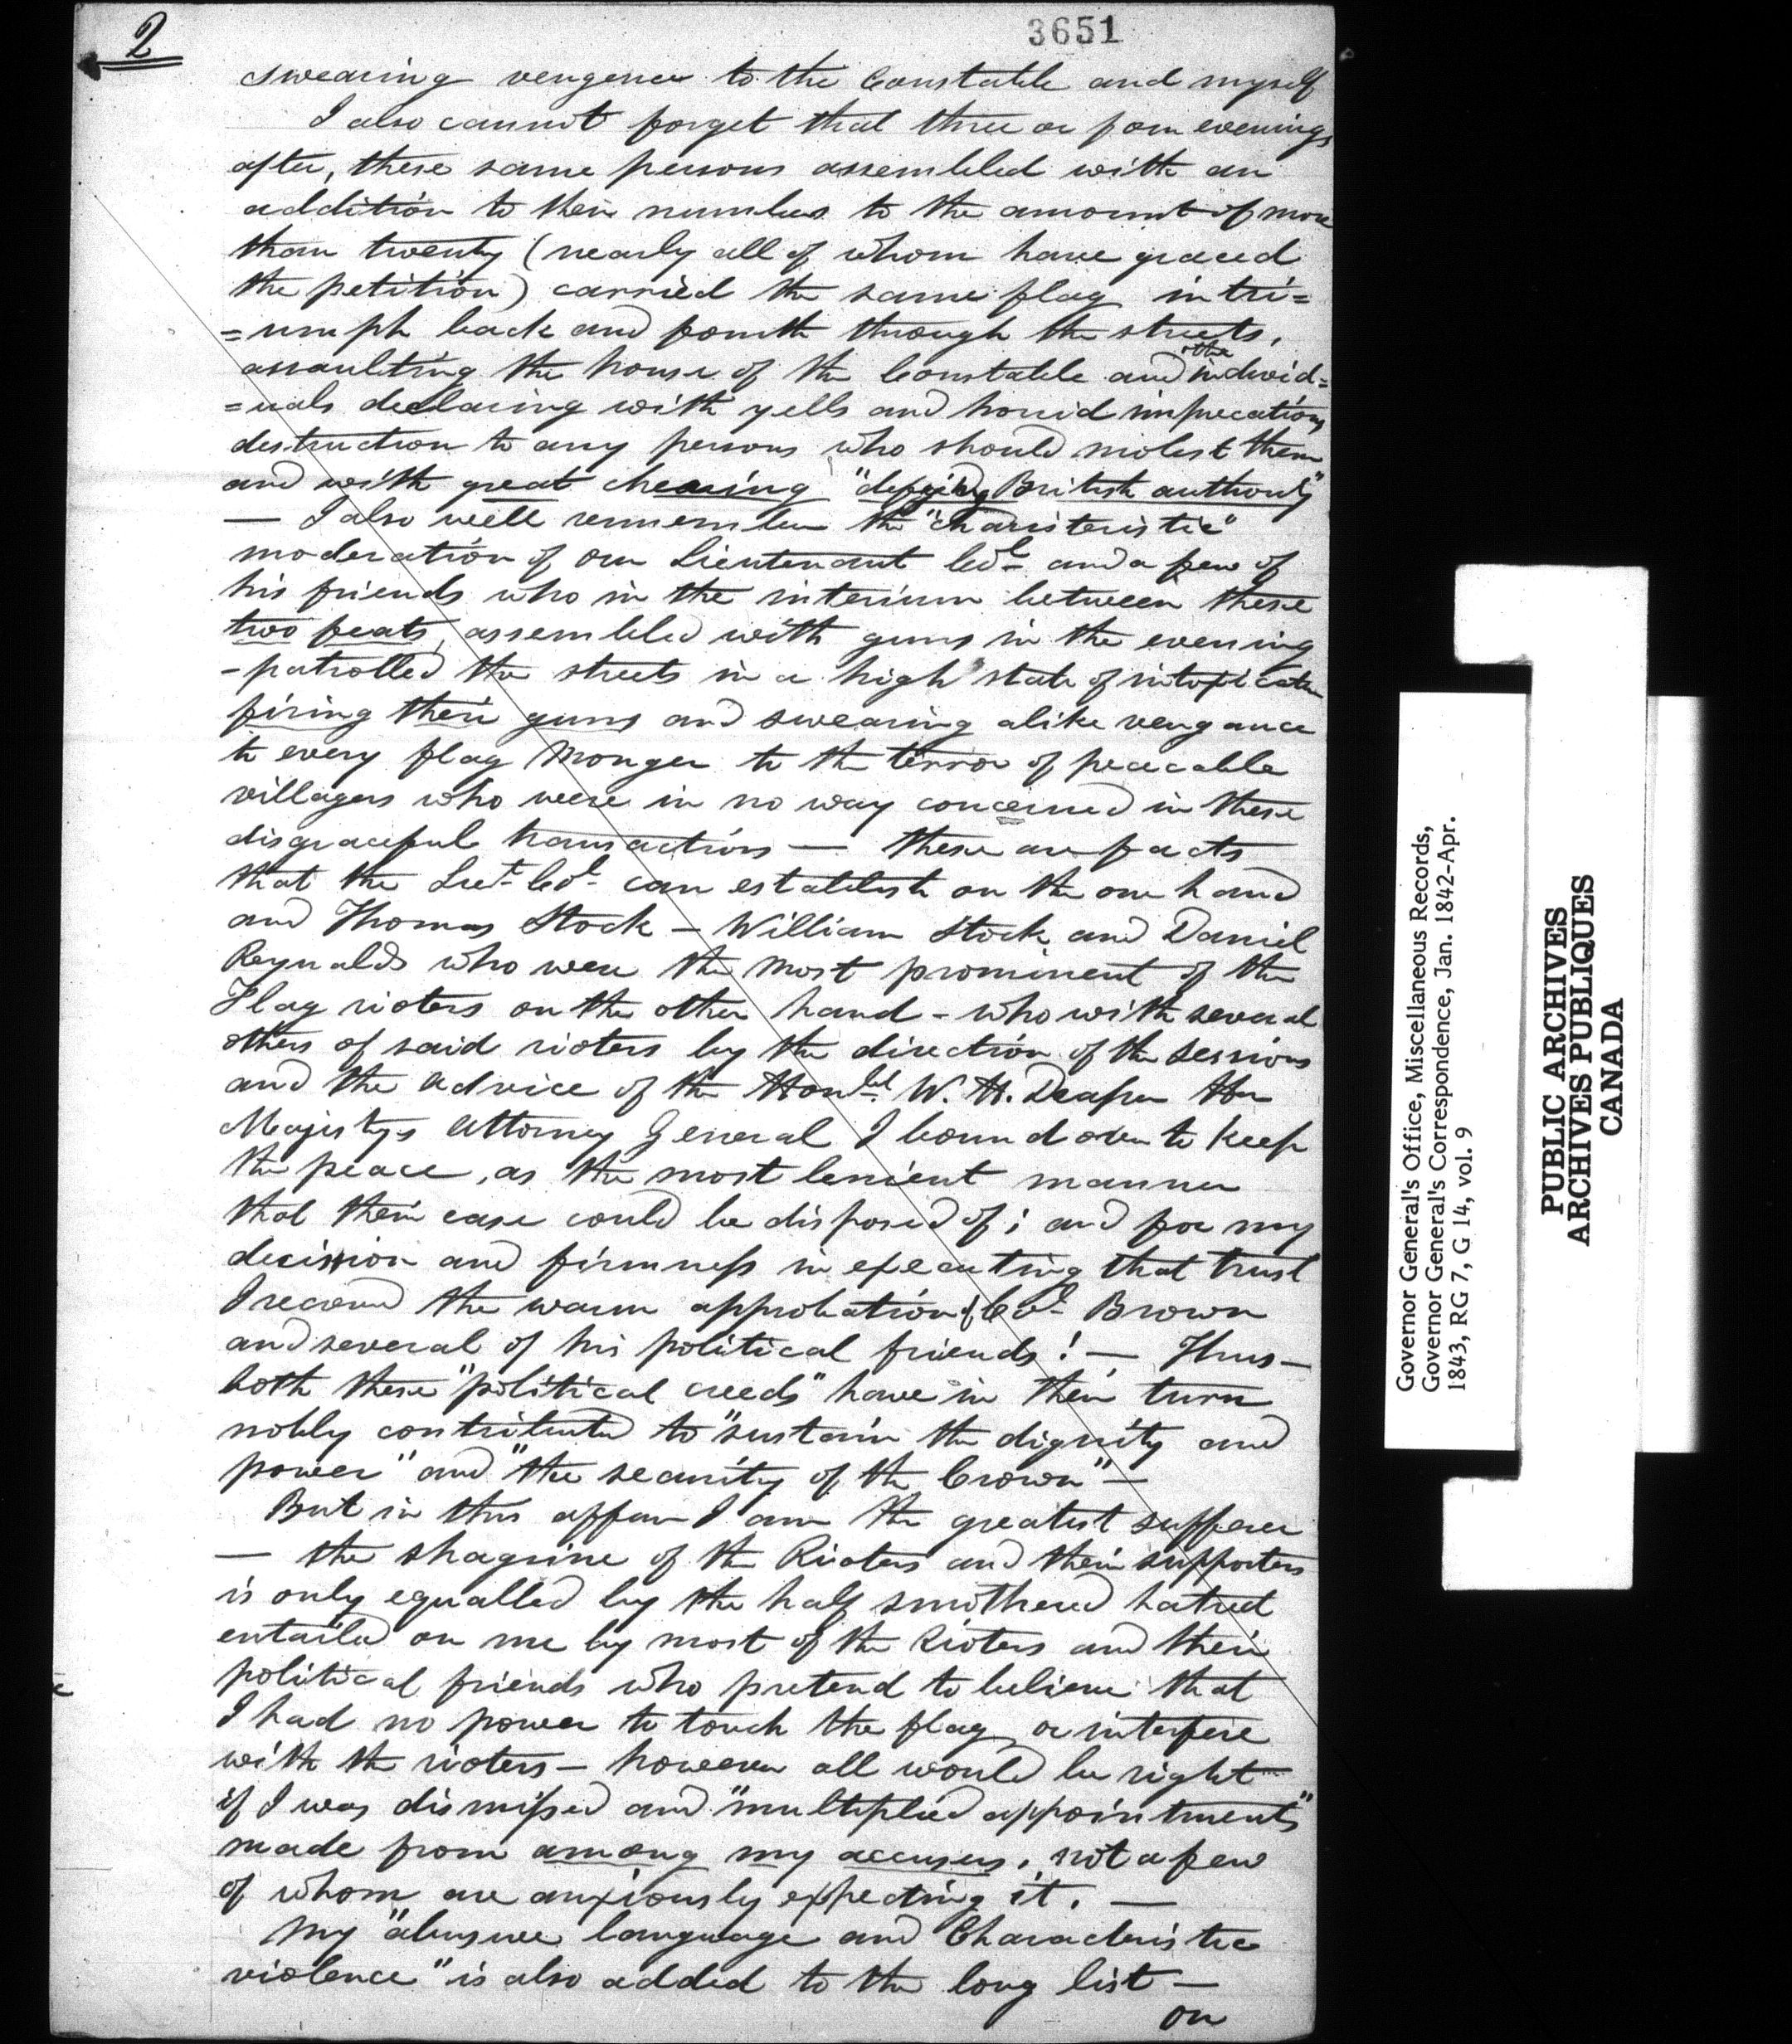 2
3651
swearing vengence to the Constable and myself
I also cannot forget that three or four evenings
after, these same persons assembled with an
addition to their number to the amount of more
than twenty (nearly all of whom have graced
the petition) carried the same flag in tri=
=umph back and fourth through the streets,
assaulting the house of the Constable and other individ=
=uals declaring with yells and horrid imprecations
destruction to any persons who should molest them
and with great cheering "defying British authority"
— I also well remember the "charisteristic"
moderation of our Lieutenant Col and a few of
his friends who in the interium between these
two feats, assembled with guns in the evening
-patrolled the streets in a high state of intoxication
firing their guns and swearing alike vengance
to every flag Monger to the terror of peacable
villagers who were in no way concerned in these
disgraceful transactions — these are facts
that the Lieut- Col- can establish on the one hand
and Thomas Stock – William Stock and Daniel
Reynalds who were the most prominent of the
Flag rioters on the other hand – who with several
others of said rioters by the direction of the Sessions
and the advice of the Honbl W. H. Draper Her
Majestys Attorney General I bound over to keep
the peace, as the most lenient manner
that their case could be disposed of; and for my
decision and firmness in executing that trust
I received the warm approbation of Col Brown
and several of his political friends! — Thus —
both these "political creeds" have in their turn
nobly contributed to "sustain the dignity and
power" and "the security of the Crown" —
But in this affair I am the greatest sufferer
— the shagrine of the Rioters and their supporters
is only equalled by the half smothered hatred
entailed on me by most of the Rioters and their
political friends who pretend to believe that
I had no power to touch the flag or interfere
with the rioters – however all would be right
if I was dismissed and "multiplied appointments"
made from among my accusers, not a few
of whom are anxiously expecting it. —
My "abusive language and Characteristic
violence" is also added to the long list —
on
Governor General's Office, Miscellaneous Records,
Governor General's Correspondence, Jan. 1842-Apr.
1843, RG 7, G 14, vol. 9
PUBLIC ARCHIVES
ARCHIVES PUBLIQUES
CANADA